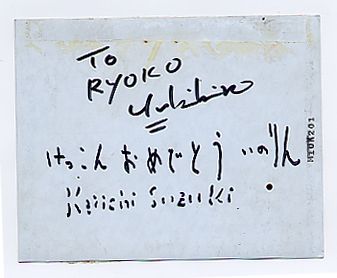 To
RYOKO
Yukihiro
けっこん おめでとう いのりん
Keiichi Suzuki.
MIUK201